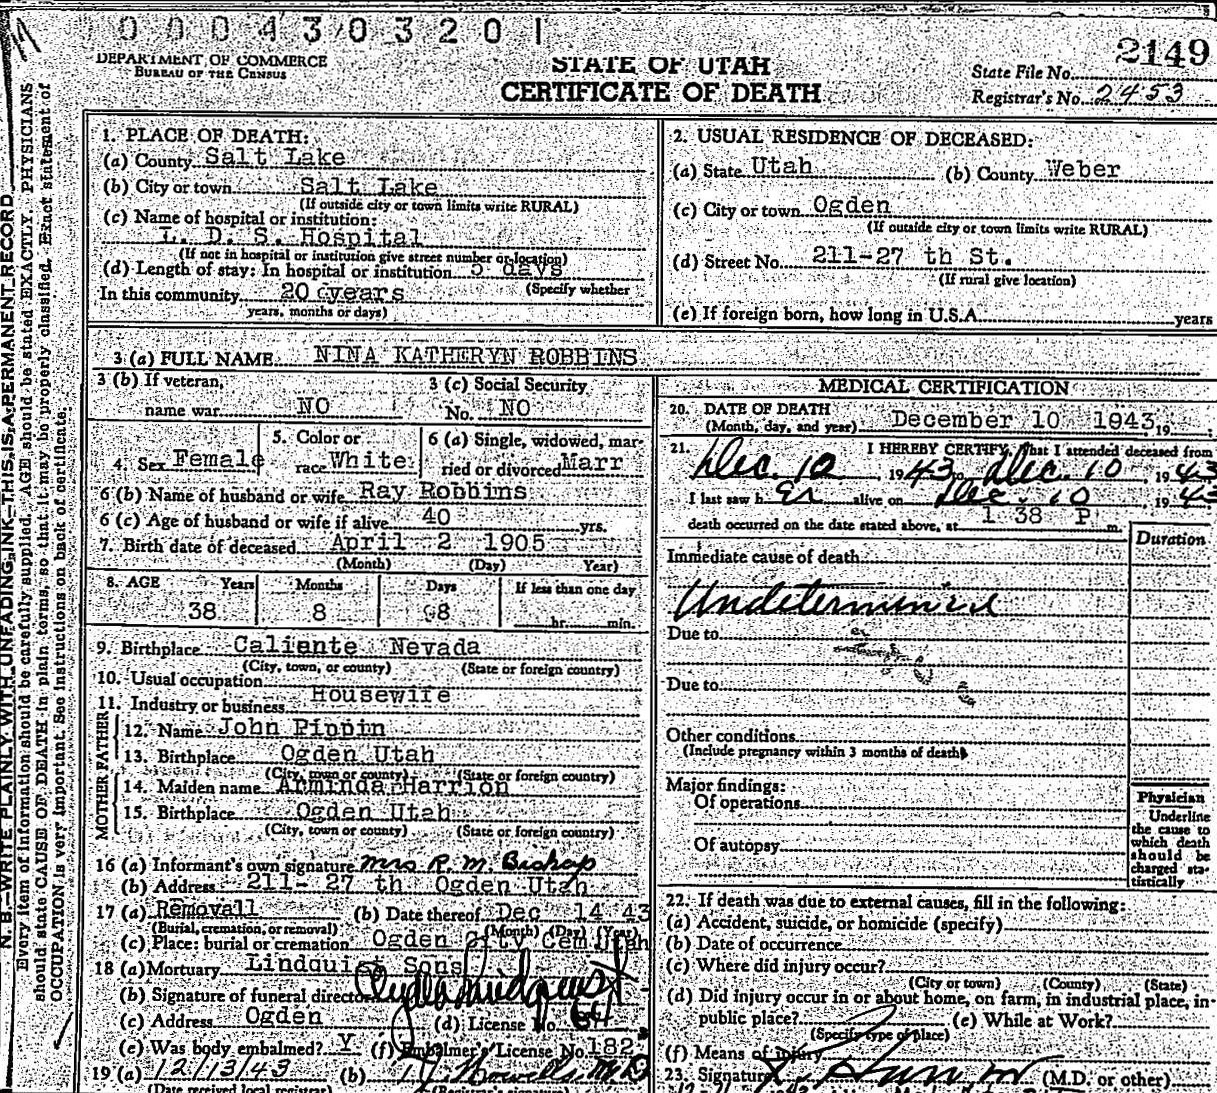 000430320 1
DEPARTMENT OF COMMERCE
BUREAU OF THE CENSUS
STATE OF UTAH
CERTIFICATE OF DEATH
2149
State File No.
Registrar's No. 2453
N. B.—WRITE PLAINLY WITH UNFADING INK—THIS IS A PERMANENT RECORD
Every item of information should be carefully supplied. AGE should be stated EXACTLY. PHYSICIANS
should state CAUSE OF DEATH in plain terms, so that it may be properly classified. Exact statement of
OCCUPATION is very important. See instructions on back of certificate.
1. PLACE OF DEATH:
(a) County Salt Lake
(b) City or town Salt Lake
(If outside city or town limits write RURAL)
(c) Name of hospital or institution:
L. D. S. Hospital
(If not in hospital or institution give street number or location)
(d) Length of stay: In hospital or institution days
(Specify whether
In this community 20 years
years, months or days)
2. USUAL RESIDENCE OF DECEASED:
(a) State Utah (b) County Weber
(c) City or town Ogden
(If outside city or town limits write RURAL)
(d) Street No. 211-27 th St.
(If rural give location)
(e) If foreign born, how long in U.S.A. years
3 (a) FULL NAME NINA KATHERYN ROBBINS
3 (b) If veteran, name war NO
3 (c) Social Security No. NO
4. Sex Female
5. Color or race White
6 (a) Single, widowed, married or divorced Marr
6 (b) Name of husband or wife Ray Robbins
6 (c) Age of husband or wife if alive 40 yrs.
7. Birth date of deceased April 2 1905
(Month) (Day) Year)
8. AGE Years Months Days If less than one day
38 8 8 hr. min.
9. Birthplace Caliente Nevada
(City, town, or county) (State or foreign country)
10. Usual occupation
Housewife
11. Industry or business
FATHER
12. Name John Pippin
13. Birthplace Ogden Utah
(City, town or county) (State or foreign country)
MOTHER
14. Maiden name Arminda Harrion
15. Birthplace Ogden Utah
(City, town or county) (State or foreign country)
16 (a) Informant's own signature Mrs R. M. Bishop
(b) Address 211- 27 th Ogden Utah
17 (a) Removall (b) Date thereof Dec 14 43
(Burial, cremation, or removal) (Month) (Day) (Year)
(c) Place: burial or cremation Ogden City Cem Utah
18 (a) Mortuary Lindquist Sons
(b) Signature of funeral director Lindquist
(c) Address Ogden (d) License No.
(e) Was body embalmed? Y (f) Embalmer's License No. 182
19 (a) 12/13/43 (b) M.D.
(Date received local registrar) (Registrar's signature)
MEDICAL CERTIFICATION
20. DATE OF DEATH December 10 1943, 19
(Month, day, and year)
21. I HEREBY CERTIFY, That I attended deceased from
Dec. 10, 1943 to Dec. 10, 1943
I last saw her alive on Dec. 10 1943
death occurred on the date stated above, at 1 38 P m.
Duration
Immediate cause of death
Undetermined
Due to
Due to
Other conditions
(Include pregnancy within 3 months of death)
Major findings:
Of operations
Of autopsy
Physician
Underline
the cause to
which death
should be
charged sta-
tistically
22. If death was due to external causes, fill in the following:
(a) Accident, suicide, or homicide (specify)
(b) Date of occurrence
(c) Where did injury occur?
(City or town) (County) (State)
(d) Did injury occur in or about home, on farm, in industrial place, in
public place? (e) While at Work?
(Specify type of place)
(f) Means of injury
23. Signature (M.D. or other)